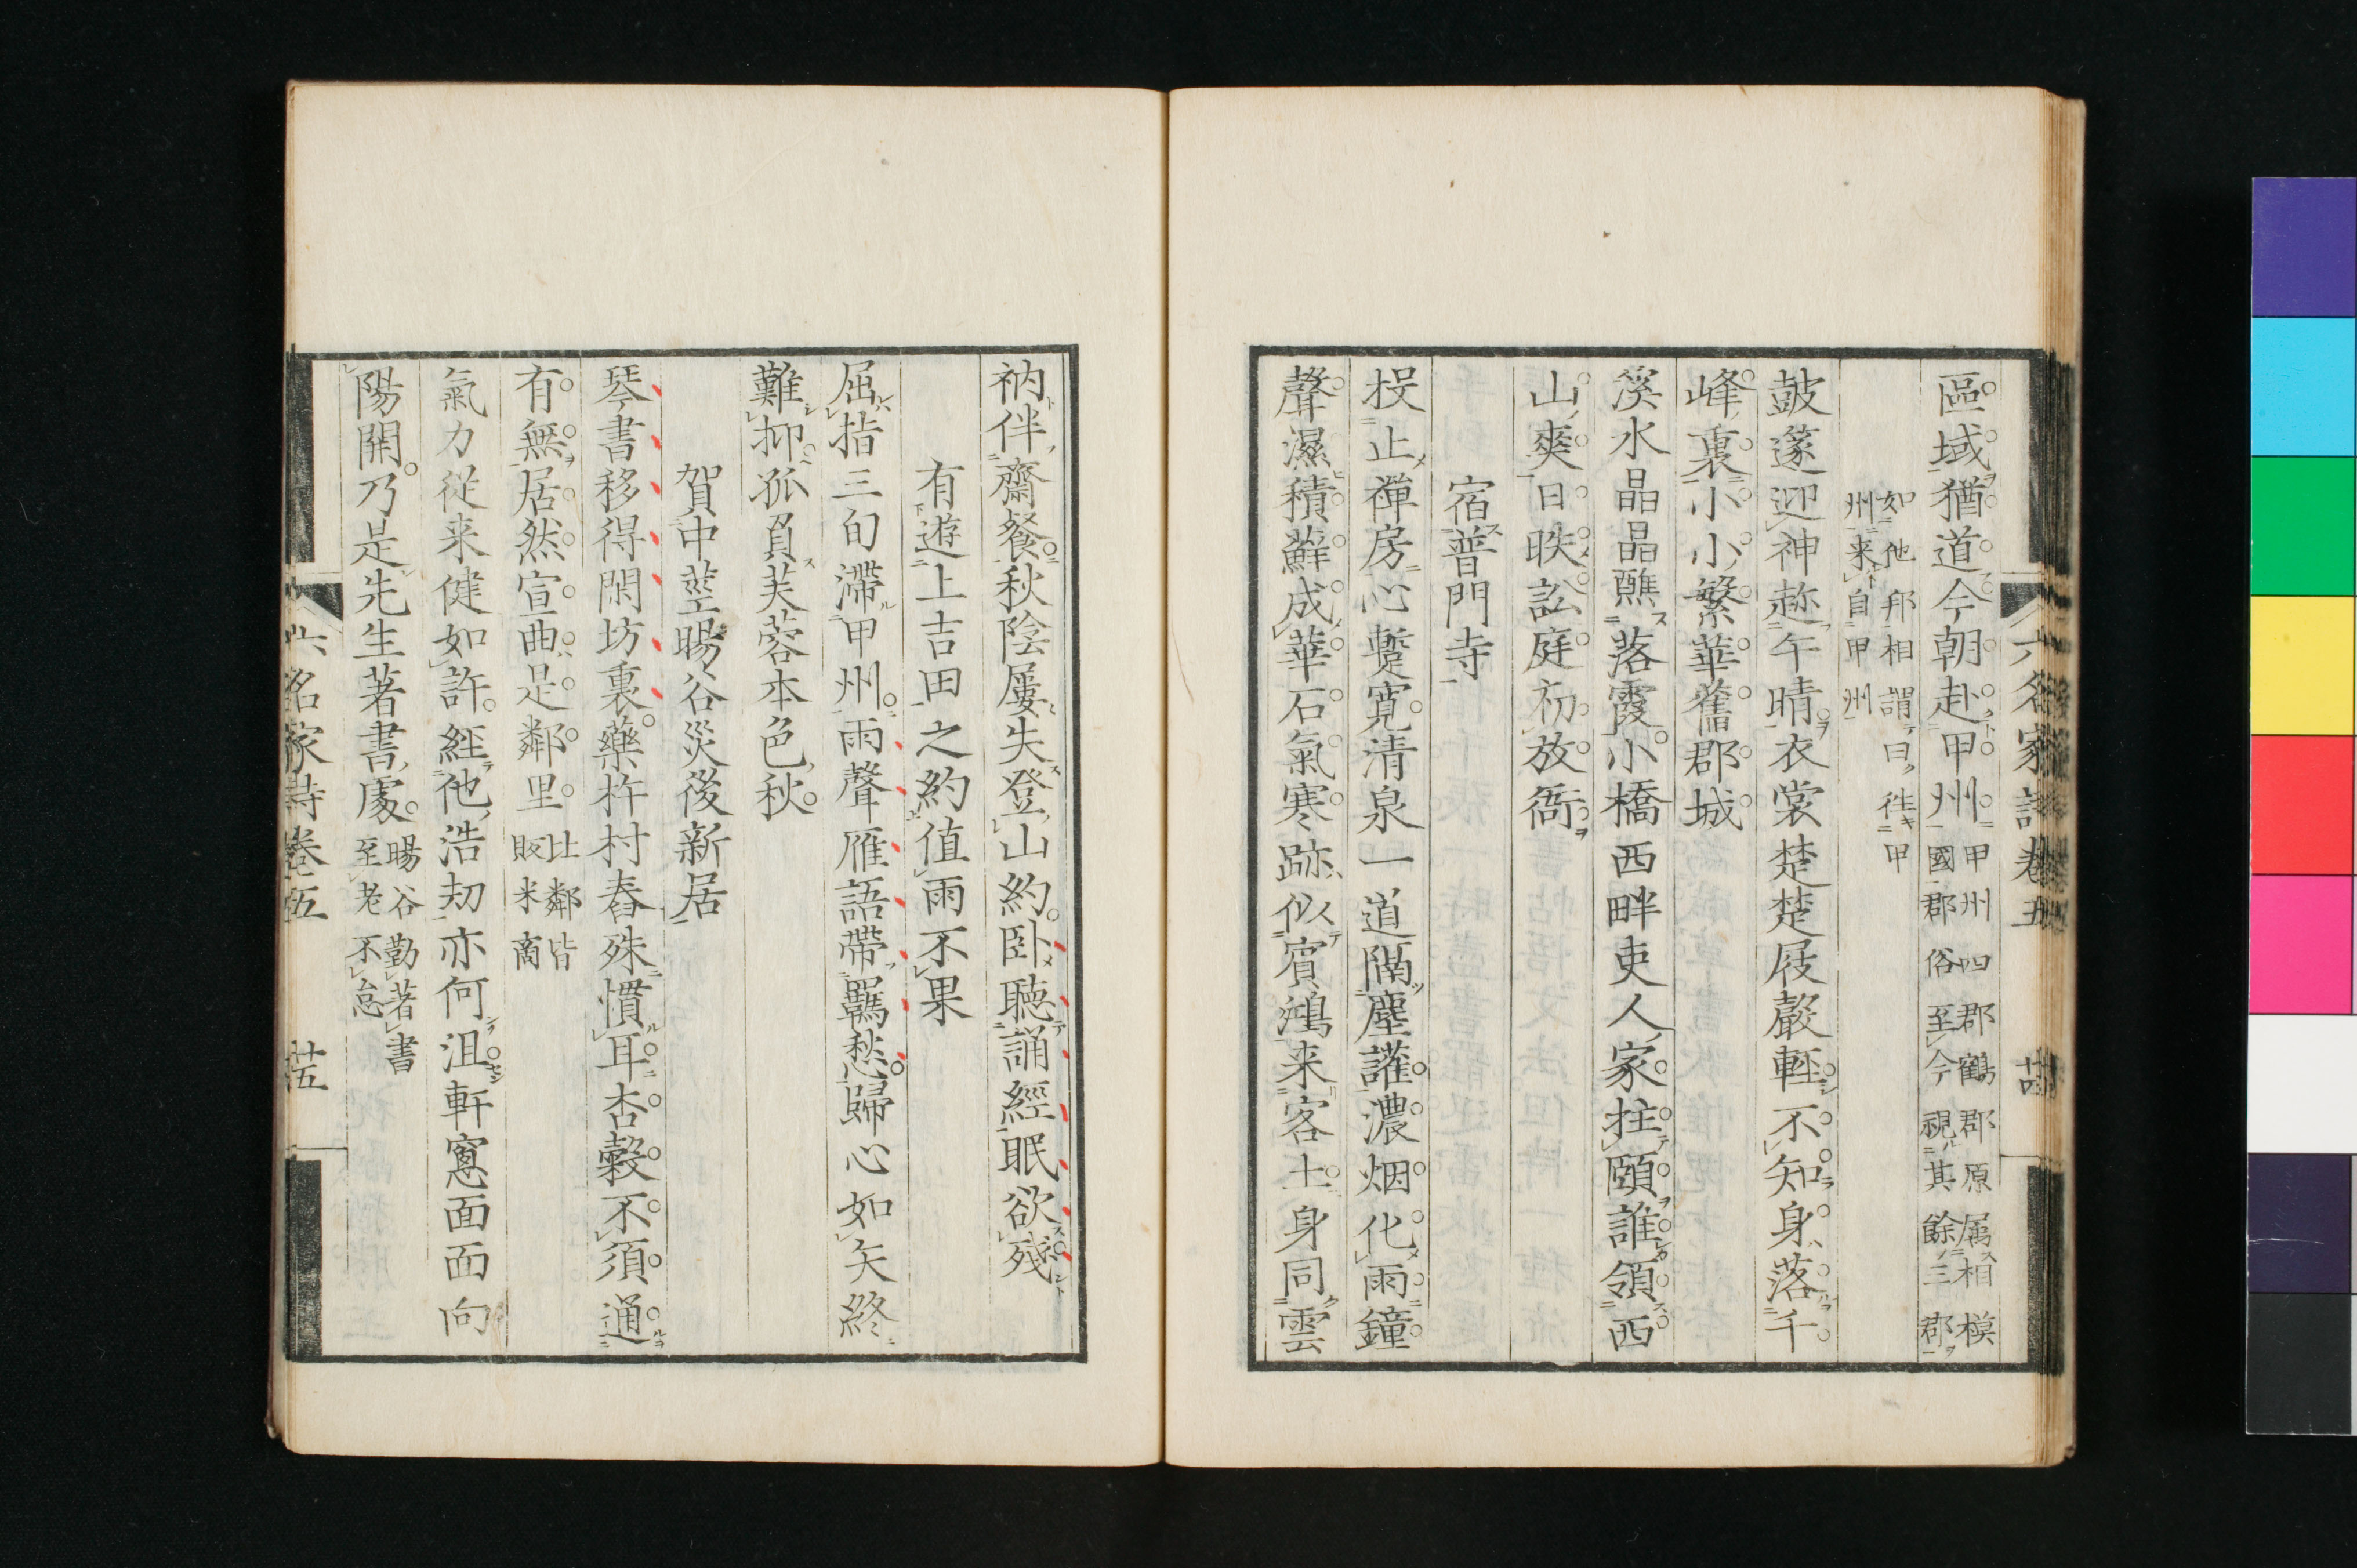 六名家詩卷五 廿四
區域猶道今朝赴甲州甲州四郡鶴郡原属相模
國郡俗至今視其餘三郡
如他邦相謂曰徃甲
州来自甲州
鼓邃迎神趂午晴衣裳楚楚屐聲輕不知身落千
峰裏小小繁華舊郡城
溪水晶晶醮落霞小橋西畔吏人家拄頤誰領西
山爽日昳訟庭初放衙
宿普門寺
投止禪房心蹔寛清泉一道隔塵讙濃烟化雨鐘
聲濕積蘚成華石氣寒跡似賓鴻来客士身同雲
衲伴齋餐秋陰屢失登山約卧聽誦經眠欲殘
有遊上吉田之約値雨不果
屈指三旬滯甲州雨聲雁語帶羈愁歸心如矢終
難抑孤負芙蓉本色秋
賀中莖暘谷災後新居
琴書移得閑坊裏藥杵村舂殊慣耳杏穀不須通
有無居然宣曲是鄰里比鄰皆
販米商
氣力從来健如許經他浩刧亦何沮軒窓面面向
陽開乃是先生著書處暘谷勤著書
至老不怠
六名家詩卷五 廿五